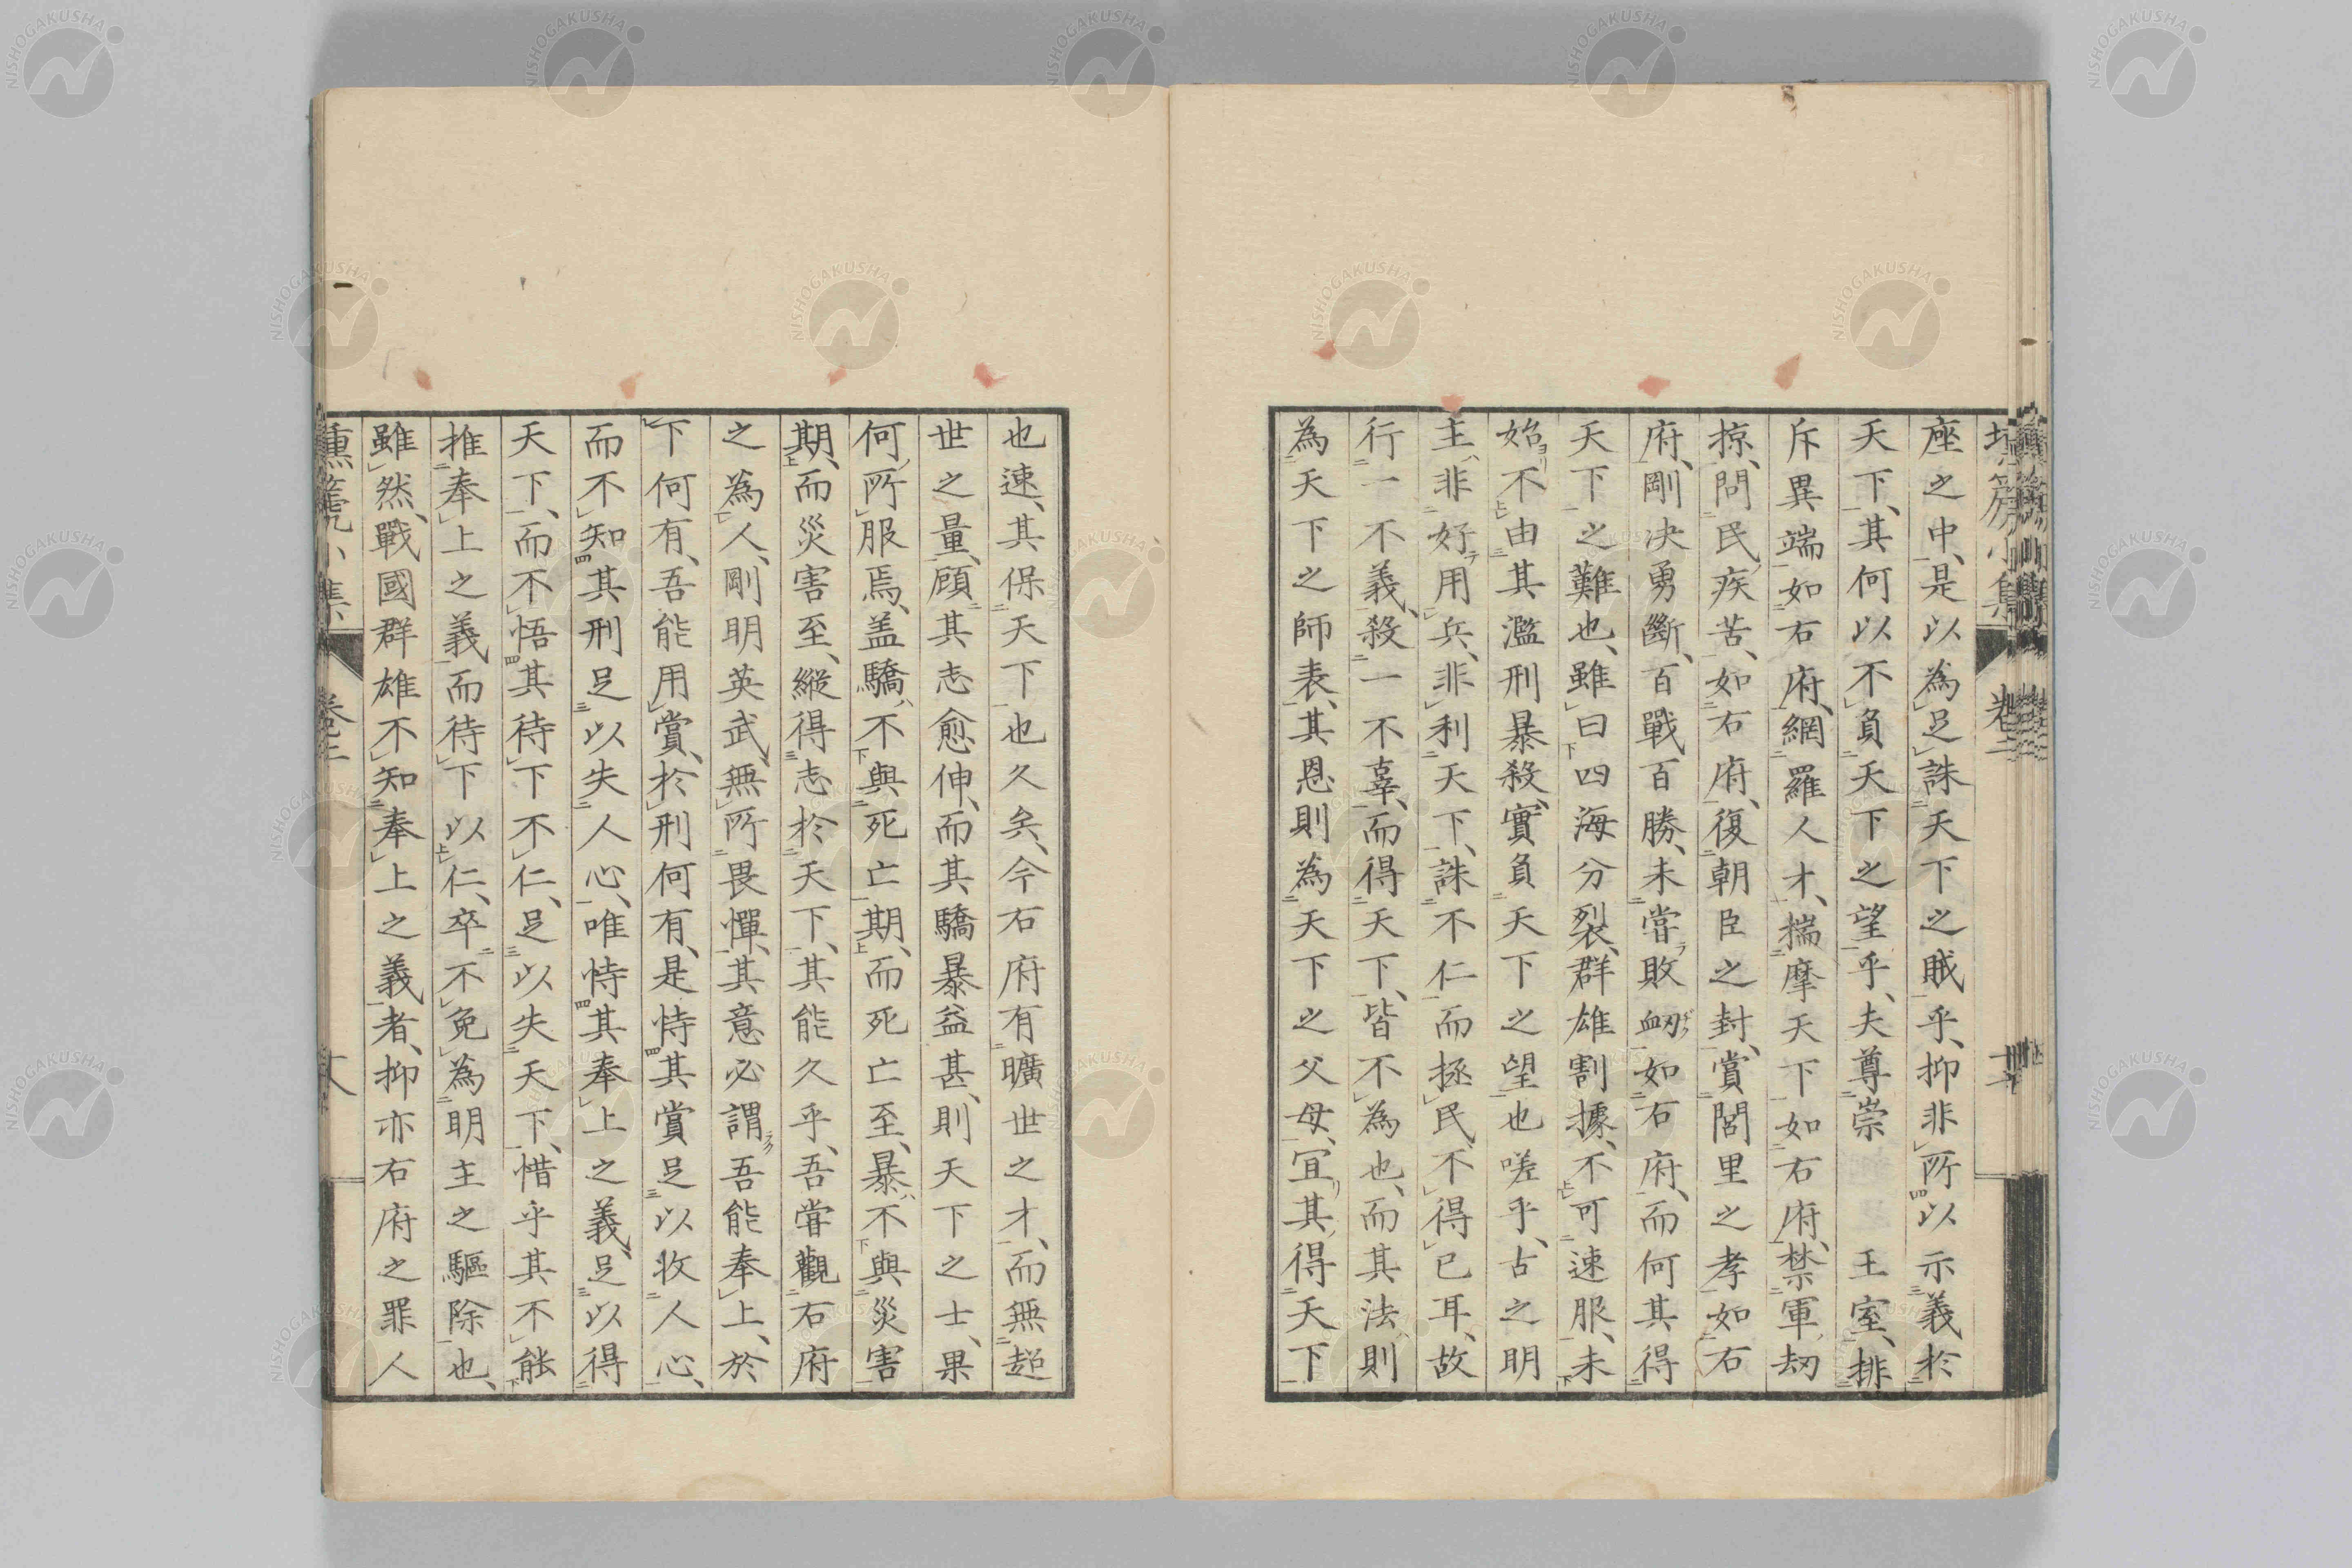 座之中、是以為足誅天下之賊乎、抑非所以示義於
天下、其何以不負天下之望乎、夫尊崇　王室、排
斥異端、如右府、網羅人才、揣摩天下、如右府、禁軍刼
掠、問民疾苦、如右府、復朝臣之封、賞閭里之孝、如右
府、剛决勇斷、百戰百勝、未嘗敗衂、如右府、而何其得
天下之難也、雖曰四海分裂、群雄割據、不可速服、未
始不由其濫刑暴殺、實負天下之望也、嗟乎、古之明
主、非好用兵、非利天下、誅不仁而拯民、不得已耳、故
行一不義、殺一不辜、而得天下、皆不為也、而其法則
為天下之師表、其恩則為天下之父母、宜其得天下
也速、其保天下也久矣、今右府有曠世之才、而無超
世之量、顧其志愈伸、而其驕暴益甚、則天下之士、果
何所服焉、盖驕不與死亡期、而死亡至、暴不與災害
期、而災害至、縱得志於天下、其能久乎、吾嘗觀右府
之為人、剛明英武、無所畏憚、其意必謂吾能奉上、於
下何有、吾能用賞、於刑何有、是恃其賞足以收人心、
而不知其刑足以失人心、唯恃其奉上之義、足以得
天下、而不悟其待下不仁、足以失天下、惜乎其不能
推奉上之義、而待下以仁、卒不免為明主之驅除也、
雖然、戰國群雄不知奉上之義者、抑亦右府之罪人
篪小集 卷二
NISHOGAKUSHA